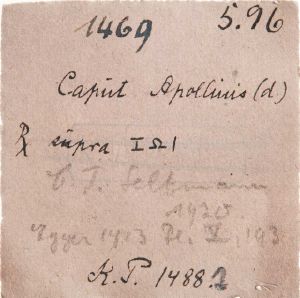 1469 5.96
Caput Apollinis (d)
℞ supra ΙΩΙ
C. T. Seltmann
1920
Egger 1913 Pl. V, 193
K.P. 1488.2